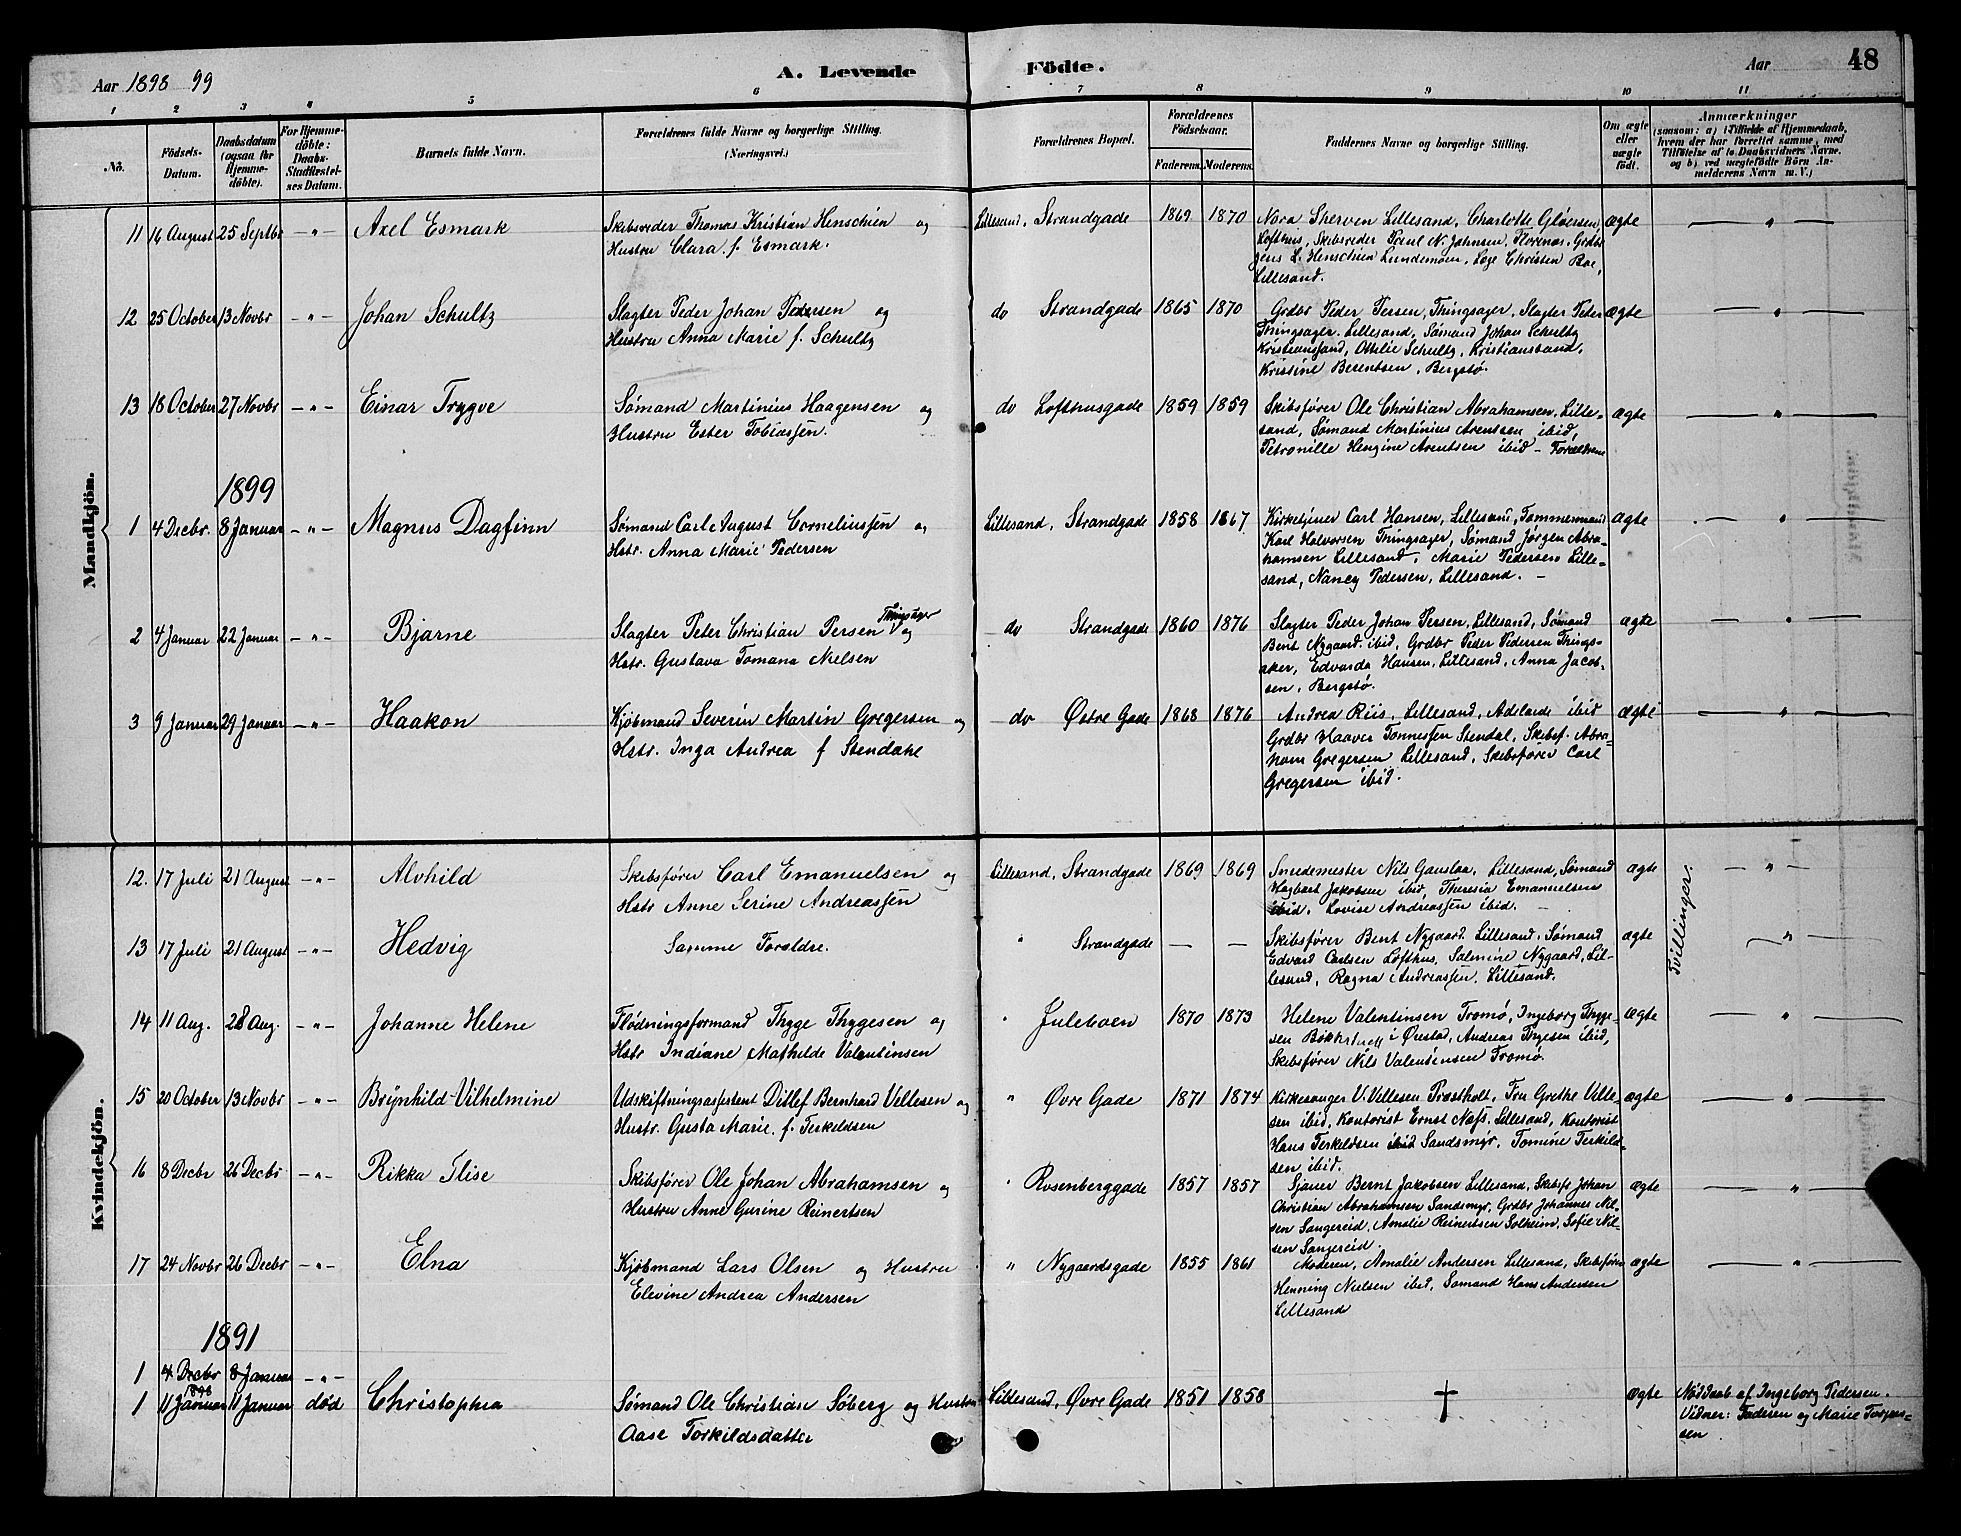 Aar 1898 99
A. Levende Födte.
Aar
48
1 2 3 4 5 6 7 8 9 10 11
No.
Födsels-Datum.
Daabsdatum (ogsaa for Hjemme-döbte).
For Hjemme-döbte: Daabs-Stadfæstel-ses Datum.
Barnets fulde Navn.
Forældrenes fulde Navne og borgerlige Stilling. (Næringsvei.)
Forældrenes Bopæl.
Forældrenes Födselsaar.
Faderens. Moderens.
Faddernes Navne og borgerlige Stilling.
Om ægte eller uægte födt.
Anmærkninger
(saasom: a) i Tilfælde af Hjemmedaab, hvem der har forrettet samme, med Tilföielse af to Daabsvidners Navne, og b) ved uægtefödte Börn Anmelderens Navn m. V.)
Mandkjön.
11 16 August 25 Septbr -"- Axel Esmark Skibsreder Thomas Kristian Henschien og Lillesand, Strandgade 1869 1870 Nora Sherven Lillesand, Charlotte Gløersen ægte "
Hustru Clara f. Esmark. Lofthuis, Skibsreder Paul N. Johnsen, Florenas. Grdbr
Jens L. Henschien Lundemoen, Loge Christen Boe,
Lillesand.
12 25 October 13 Novbr -"- Johan Schultz Slagter Peder Johan Pedersen og do Strandgade 1865 1870 Grdbr Peder Persen, Thingsager, Slagter Peter ægte "
Hustru Anna Marie f. Schultz Thingsager. Lillesand, Sømand Johan Schultz
Kristiansand, Ottilie Schultz, Kristiansand,
Kristine Berentsen, Bergstø.
13 18 October 27 Novbr -"- Einar Trygve Sømand Martinius Haagensen og do Lofthusgade 1859 1859 Skibsfører Ole Christian Abrahamsen, Lille- ægte "
Hustru Ester Tobiassen. sand, Sømand Martinius Arentsen ibid,
Petronille Hengine Arentsen ibid - Forældrene
1899
1 4 Decbr. 8 Januar -"- Magnus Dagfinn Sømand Carl August Corneliussen og Lillesand, Strandgade 1858 1867 Kirketjener Carl Hansen, Lillesand, Tømmermand ægte "
Hstr. Anna Marie Pedersen Karl Halvorsen Thingsager, Sømand Jørgen Abra-
hamsen Lillesand, Marie Pedersen Lille-
sand, Nancy Pedersen, Lillesand. -
2 4 Januar 22 Januar -"- Bjarne Slagter Peter Christian Persen Thingsager og do Strandgade 1860 1876 Slagter Peder Johan Persen, Lillesand, Sømand ægte "
Hstr. Gustava Tomana Nielsen Bent Nygaard ibid, Grdbr Peder Pedersen Things-
aker, Edvarda Hansen, Lillesand, Anna Jacob-
sen, Bergstø.
3 9 Januar 29 Januar -"- Haakon Kjøbmand Severin Martin Gregersen og do Østre Gade 1868 1876 Andrea Riis, Lillesand, Adelaide ibid ægte "
Hstr. Inga Andrea f Stendahl Grdbr Haaver Tønnessen Stendal, Skibsf. Abra-
ham Gregersen Lillesand, Skibsfører Carl
Gregersen ibid.
Kvindekjön.
12. 17 Juli 21 August -"- Alvhild Skibsfører Carl Emanuelsen og Lillesand, Strandgade 1869 1869 Smedemester Nils Gauslaa, Lillesand, Sømand ægte "
Hstr Anne Serine Andreassen Hagbart Jakobsen ibid, Theresia Emanuelsen
ibid, Lovise Andreassen ibid. -
Tvillinger.
13 17 Juli 21 August -"- Hedvig Samme Forældre. " Strandgade - - Skibsfører Bent Nygaard Lillesand. Sømand ægte "
Edvard Carlsen Lofthus, Salmine Nygaard, Lil-
lesand, Ragna Andreassen, Lillesand.
14 11 Aug. 28 Aug. -"- Johanne Helene Flødningsformand Thyge Thygesen og " Juleboen 1870 1873 Helene Valentinsen Tromø, Ingeborg Thyge- ægte "
Hstr Indiane Mathilde Valentinsen sen i Ørestad, Andreas Tygesen ibid,
Skibsfører Nils Valentinsen Tromø.
15 20 October 13 Novbr -"- Brynhild Vilhelmine Udskiftningsassistent Ditlef Bernhard Vellesen og " Øvre Gade 1871 1874 Kirkesanger V. Villesen Præstholt, Fru Grethe Ville- ægte "
Hustr. Gusta Marie f. Terkeldsen sen ibid, Kontorist Ernst Næss. Lillesand, Kontorist
Hans Terkeldsen ibid Sandsmyr, Tomine Terkild-
sen ibid.
16 8 Decbr 26 Decbr -"- Rikka Elise Skibsfører Ole Johan Abrahamsen og " Rosenberggade 1857 1857 Sjauer Bernt Jakobsen Lillesand, Skibsfr Johan ægte "
Hustru Anne Gurine Reinertsen Christian Abrahamsen Sandsmyr, Grdbr Johannes Nil-
sen Sangereid, Amalie Reinertsen Solheim, Sofie Nil-
sen Sangereid.
17 24 Novbr 26 Decbr -"- Elna Kjøbmand Lars Olsen og Hustru " Nygaardsgade 1855 1861 Moderen, Amalie Andersen Lillesand, Skibsfører ægte "
Elevine Andrea Andersen Henning Nielsen ibid, Sømand Hans Andersen
Lillesand
1891
1 4 Decbr 8 Januar -"-
1898
1 11 Januar 11 Januar død Christophia Sømand Ole Christian Søberg og Hustru Lillesand, Øvre Gade 1851 1858 † ægte Nøddaab af Ingeborg Pedersen.
Aase Torkildsdatter Vidner: Faderen og Marie Torjus-
sen